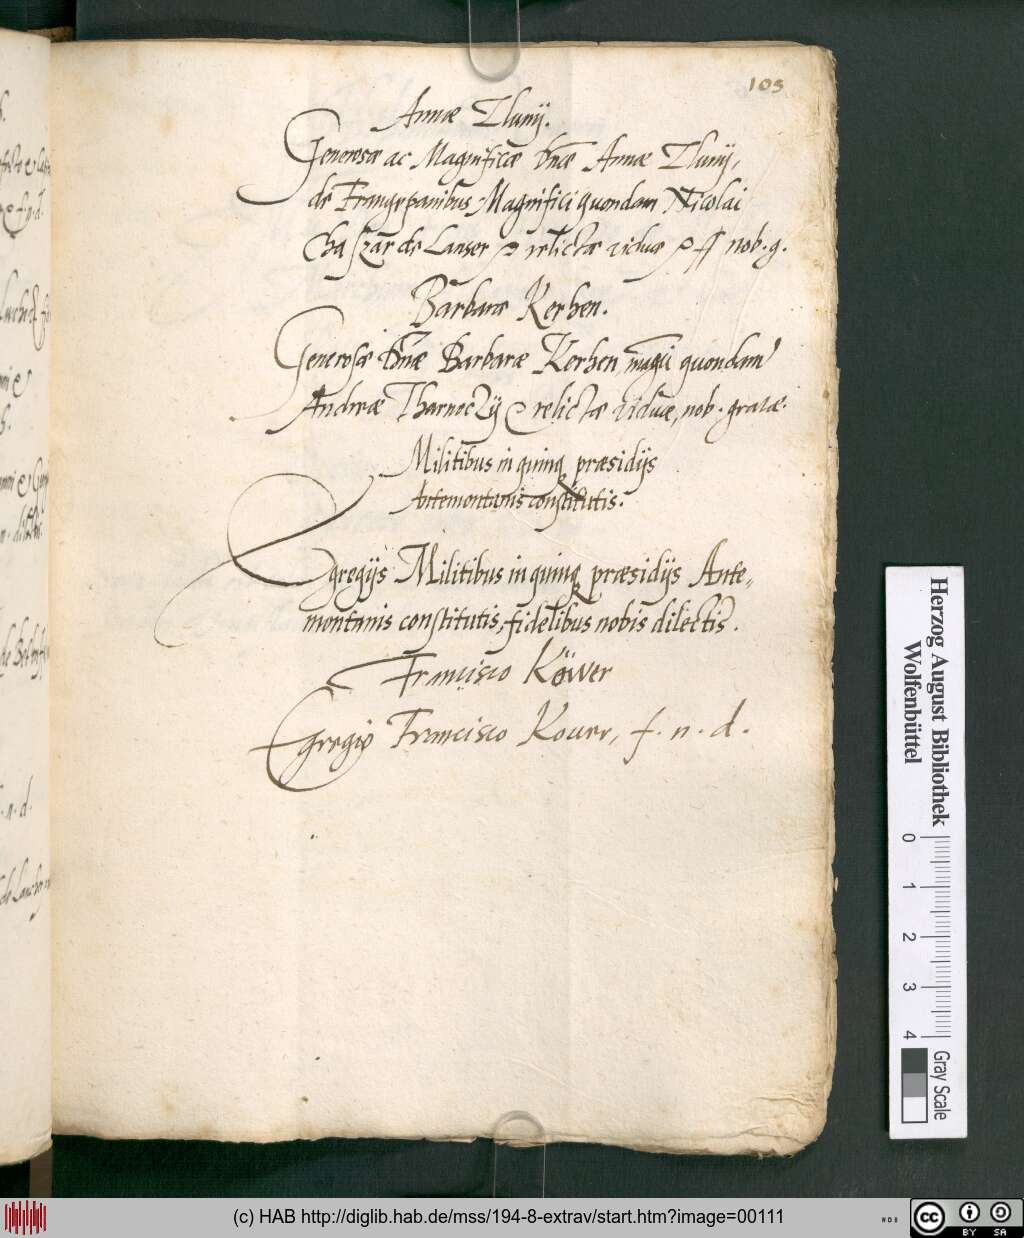 103
Annæ Zluny.
Generosæ ac Magnificæ Dnæ Annæ Zluny,
de Frangepanibus, Magnifici quondam Nicolai
Chaszar de Lanser & relictæ viduæ & nob. g.
Barbaræ Kerhen.
Generosæ Dnæ Barbaræ Kerhen magci quondam
Andreæ Tharnoczÿ & relictæ viduæ, nob. gratæ.
Militibus in quinq præsidijs
Antemontanis constitutis.
Egregijs Militibus in quinq præsidijs Ante„
montanis constitutis, fidelibus nobis dilectis.
Francisco Köwer
Egregio Francisco Kouer, f. n. d.
Herzog August Bibliothek
Wolfenbüttel
0 1 2 3 4
Gray Scale
(c) HAB http://diglib.hab.de/mss/194-8-extrav/start.htm?image=00111
WDB
cc BY SA